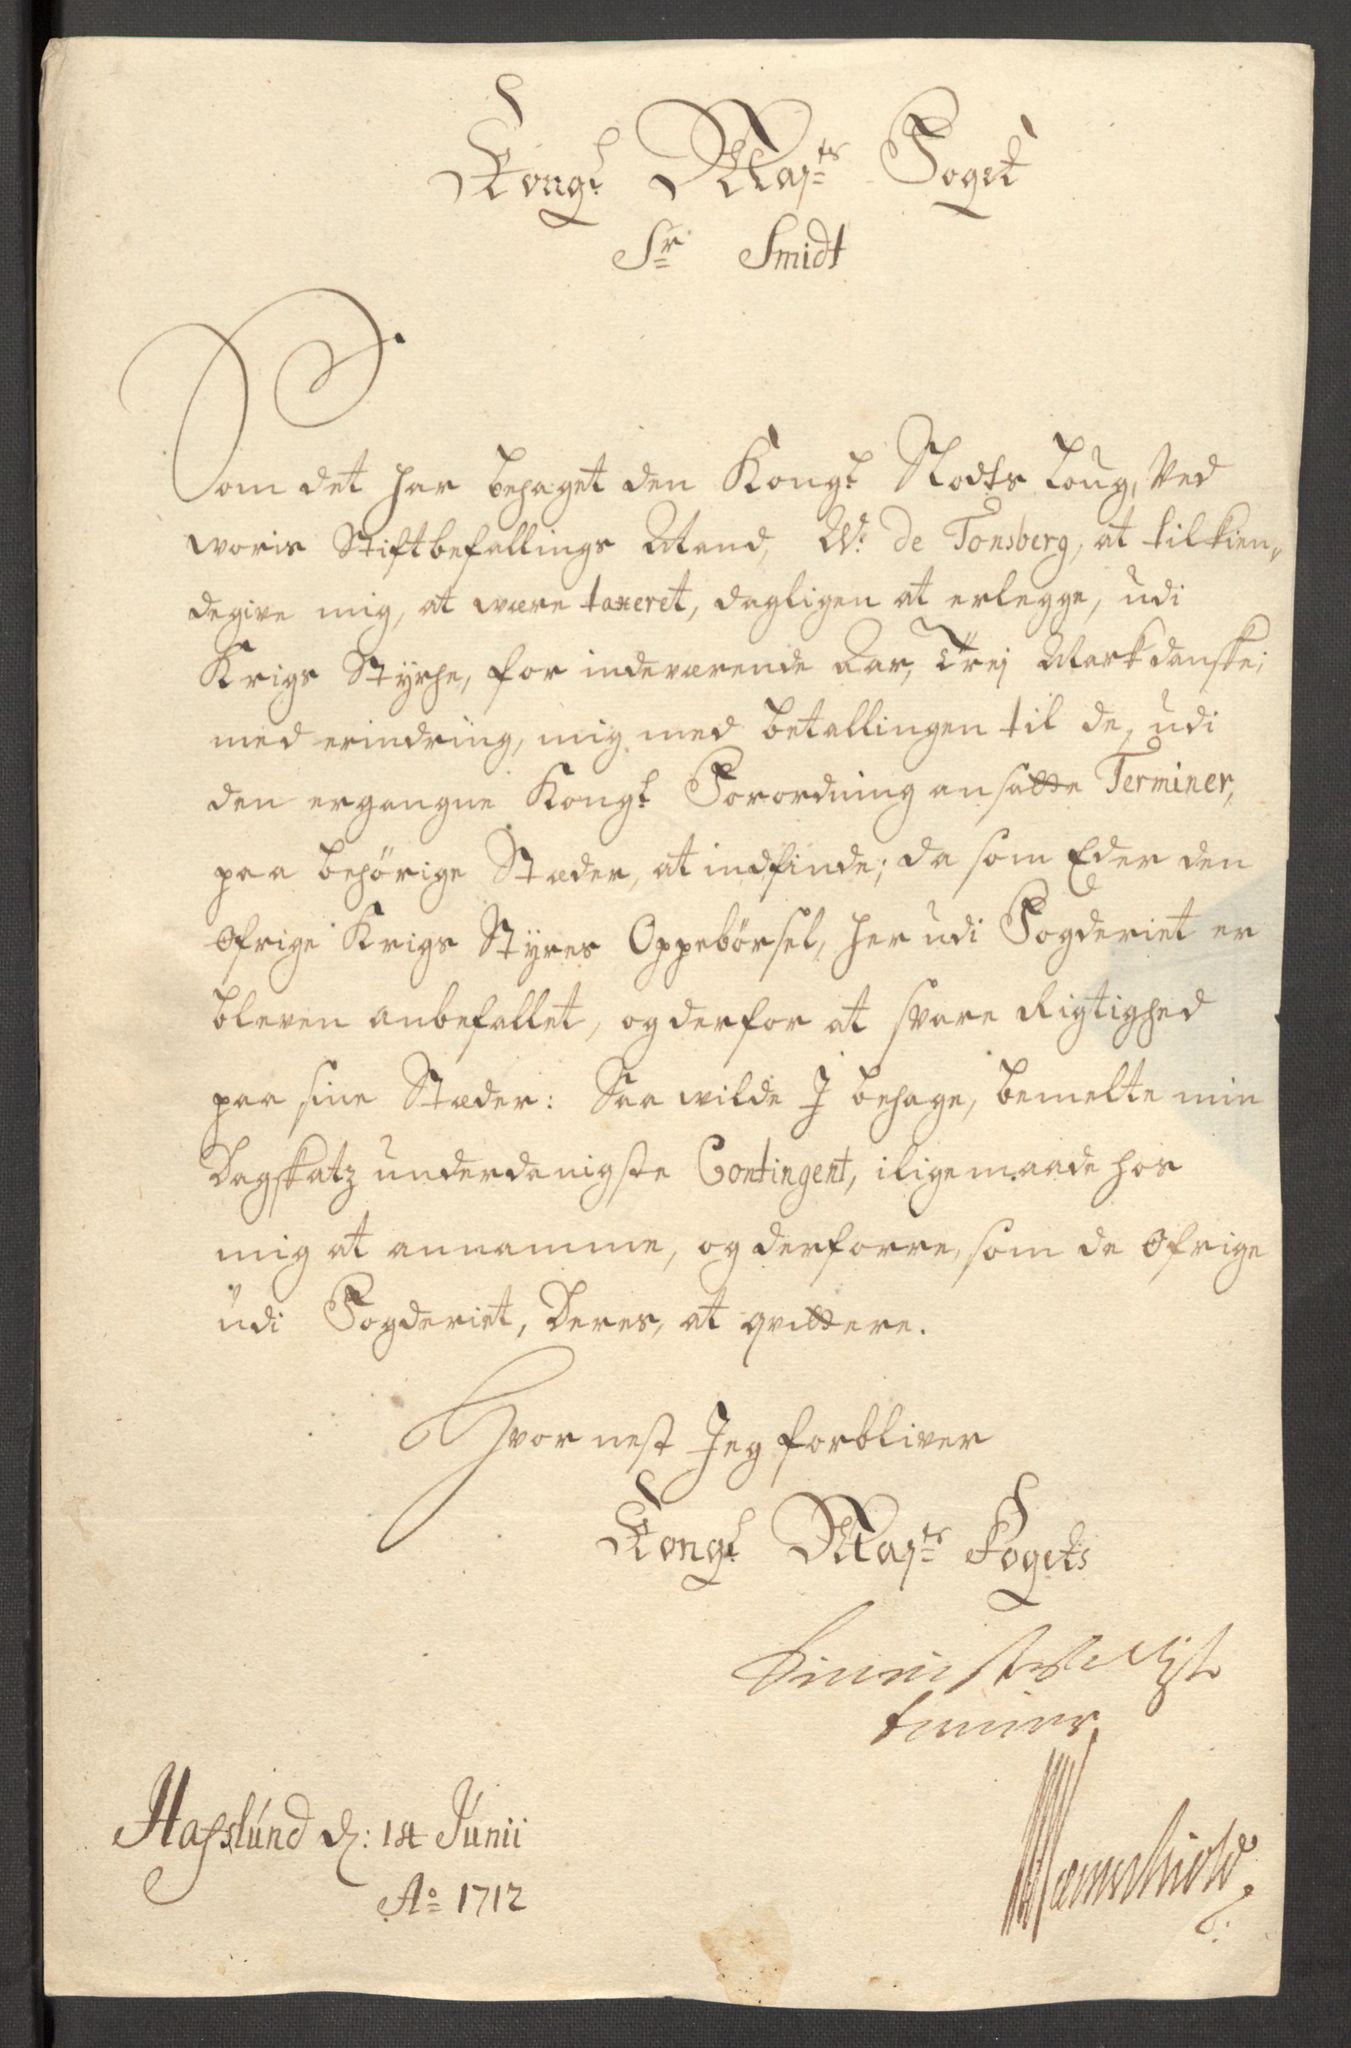 Kongl Maj:ts Foget
Sr Smidt
Som det har behaget den Kongl Slods Loug, Ved
woris Stiftbefallings Mand, W: de Tonsberg, at tilkien-
degive mig, at være taxeret, dagligen at erlegge, udi
Krigs Styrhe, for indeværende Aar, Trej Mark danske;
med erindring, mig med betallingen til de, udi
den ergangne Kongl Forordning ansatte Terminer,
paa behörige Stæder, at indfinde; da som Eder den
öfrige Krigs Styres Oppebörsel, her udi Fogderiet er
bleven anbefallet, og derfor at svare Rigtighed
paa sine Stæder: Saa wilde J behage, bemelte min
Dagskatz underdanigste Contingent, iligemaade hos
mig at annamme, og derforre, som de öfrige
udi Fogderiet, Deres, at qvittere.
Hvor nest Jeg forbliver
Kongl Maj:ts Fogets
tienner
Hafslund d: 14 Junii
Ao 1712